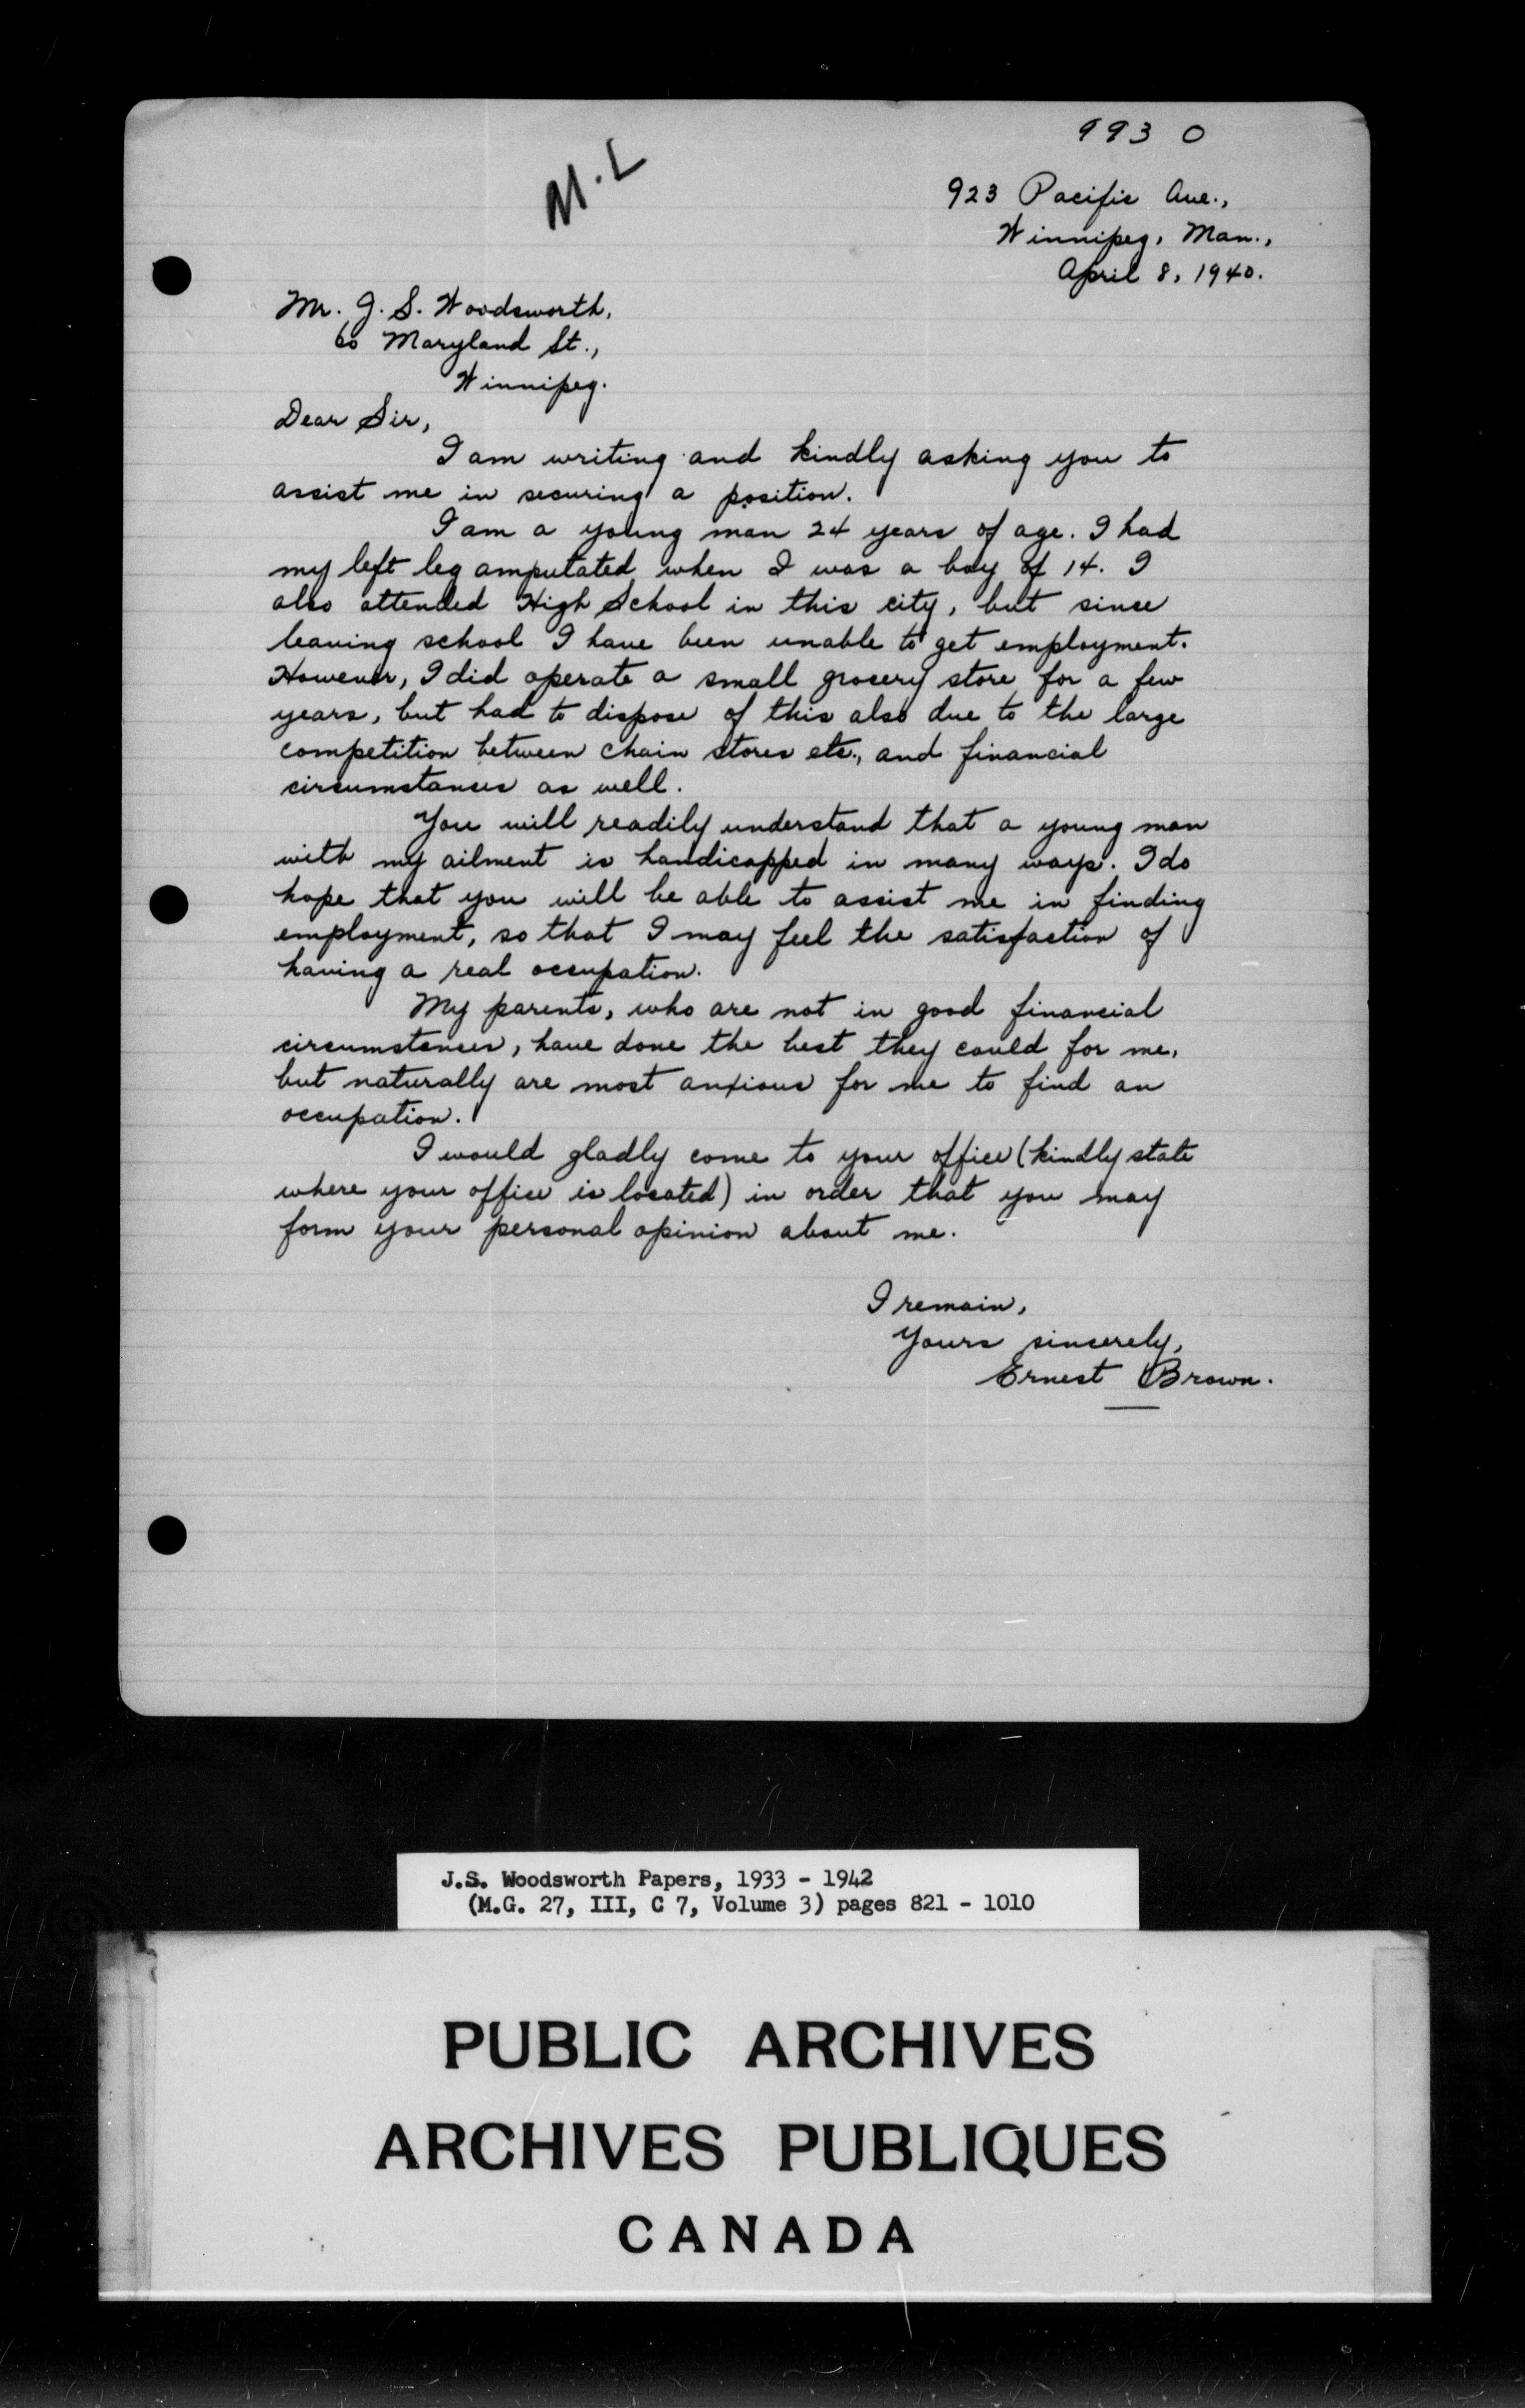 993 0
M.L
923 Pacific Ave.,
Winnipeg, Man.,
April 8, 1940.
Mr. J. S. Woodsworth,
60 Maryland St.,
Winnipeg.
Dear Sir,
I am writing and kindly asking you to
assist me in securing a position.
I am a young man 24 years of age. I had
my left leg amputated when I was a boy of 14. I
also attended High School in this city, but since
leaving school I have been unable to get employment.
However, I did operate a small grocery store for a few
years, but had to dispose of this also due to the large
competition between chain stores etc., and financial
circumstances as well.
You will readily understand that a young man
with my ailment is handicapped in many ways. I do
hope that you will be able to assist me in finding
employment, so that I may feel the satisfaction of
having a real occupation.
My parents, who are not in good financial
circumstances, have done the best they could for me,
but naturally are most anxious for me to find an
occupation.
I would gladly come to your office (kindly state
where your office is located) in order that you may
form your personal opinion about me.
I remain,
Yours sincerely,
Ernest Brown.
J.S. Woodsworth Papers, 1933 - 1942
(M.G. 27, III, C 7, Volume 3) pages 821 - 1010
PUBLIC ARCHIVES
ARCHIVES PUBLIQUES
CANADA